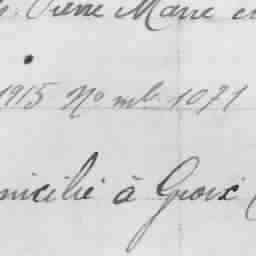 Pierre Marie
1915 No mle 1071
micilié à Groix